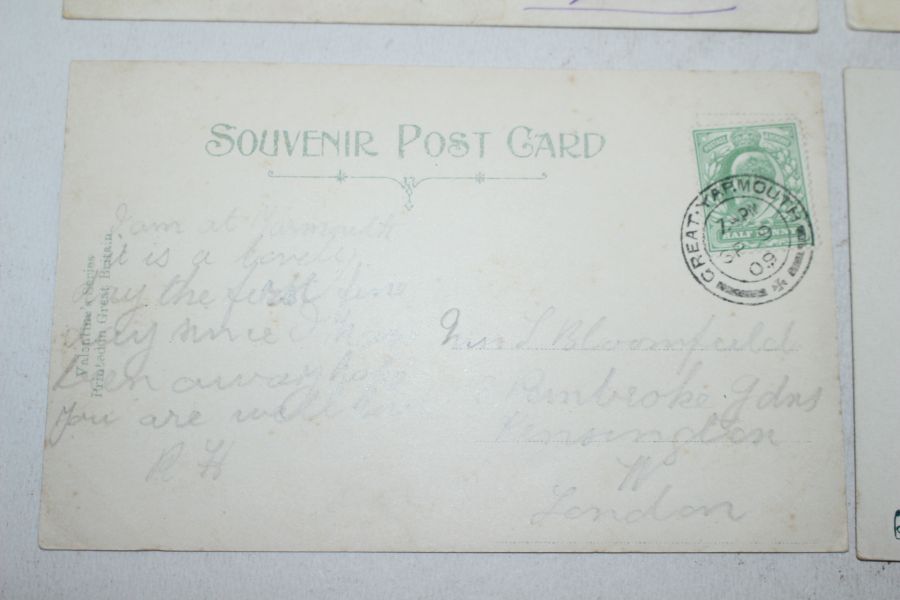 SOUVENIR POST CARD
HALF PENNY
GREAT YARMOUTH
7 PM
SP 9
09
Valentine's Series
Printed in Great Britain
I am at Yarmouth
it is a lovely
day the first fine
day since I have
been away hope
you are well
R H
Miss L Bloomfield
Pembroke Gdns
Kensington
W
London